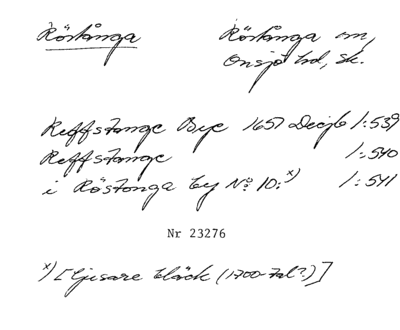 Röstånga
Röstånga sn,
Onsjö hd, Sk.
Reffstange Bye 1657 Decjb 1:539
Reffstange 1:540
i Röstonga by No 10:x) 1:541
Nr 23276
x) [ljusare bläck (1700-tal?)]